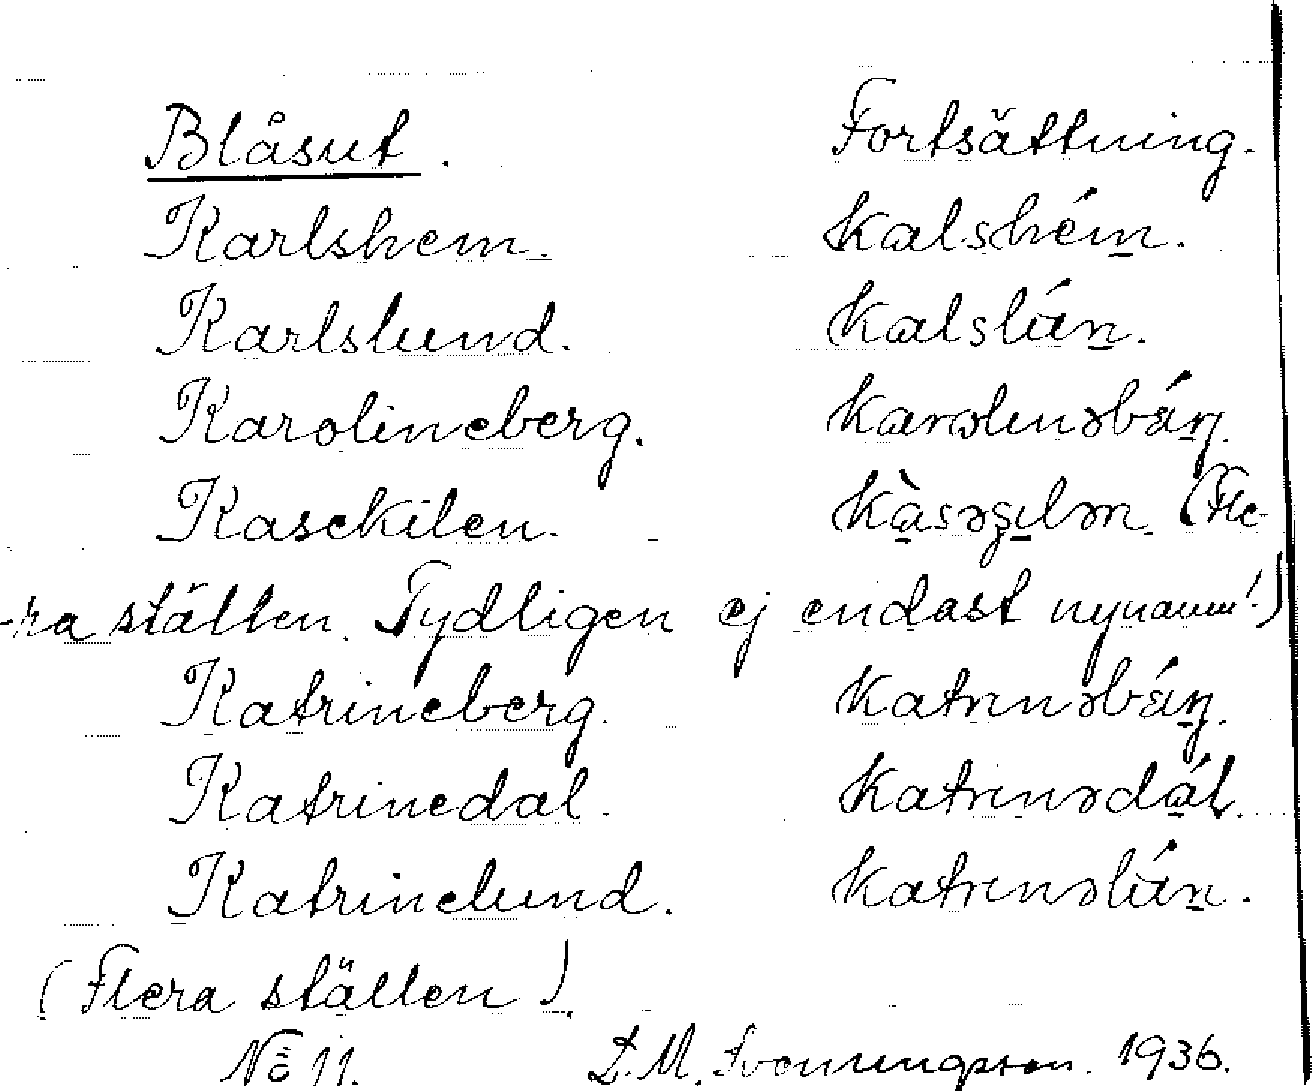 Blåsut. Fortsättning.
Karlshem. kalshém.
Karlslund. kalslún.
Karolineberg. karolinəbárj.
Kasekilen. kàsəʂilən. (Fle-
-ra ställen. Tydligen ej endast nynamn!)
Katrineberg. katrinəbárj.
Katrinedal. katrinədál.
Katrinelund. katrinəlún.
(Flera ställen!)
No 11. D. M. Svenningsson. 1936.